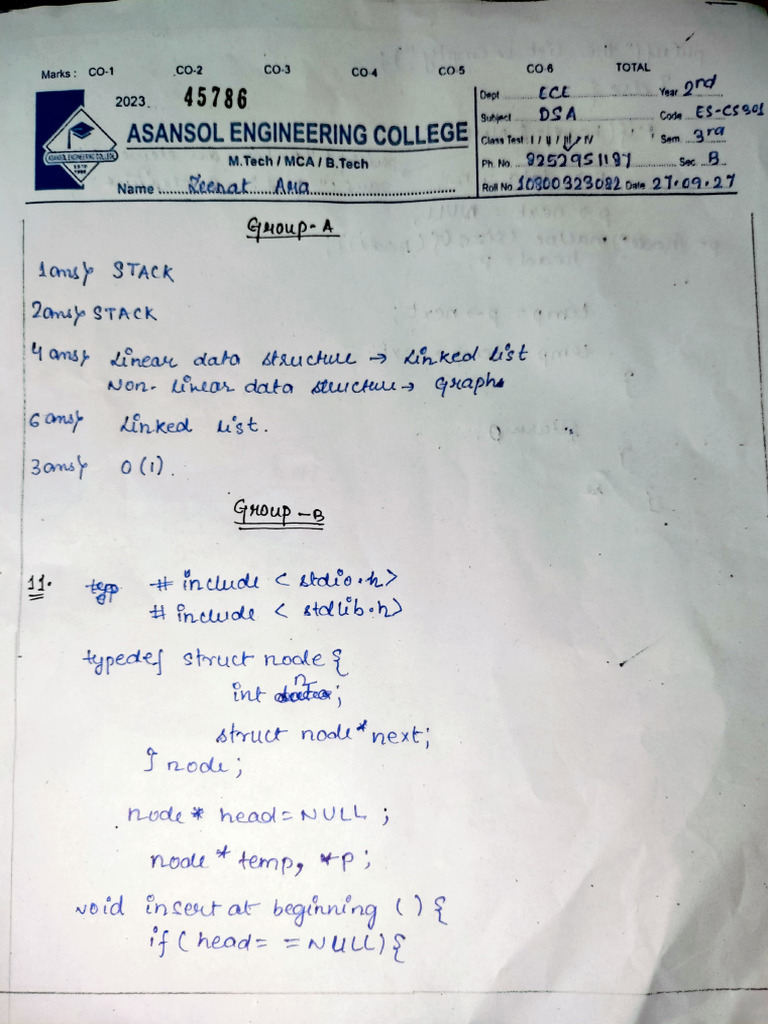 Marks : CO-1 CO-2 CO-3 CO-4 CO-5 CO-6 TOTAL
2023 45786
ASANSOL ENGINEERING COLLEGE
M.Tech / MCA / B.Tech
Name Zeenat Ara
Dept ECE Year 2nd
Subject DSA Code ES-CS301
Class Test I / II / III / IV Sem 3rd
Ph. No. 8252951181 Sec B
Roll No 10800323082 Date 27.09.27
ASANSOL ENGINEERING COLLEGE
Group-A
1 ans> STACK
2 ans> STACK
4 ans> Linear data structure → Linked list
Non-linear data structure → Graph
6 ans> Linked list.
3 ans> O(1).
Group-B
11. # include < stdio.h>
# include < stdlib.h>
typedef struct node {
int n;
struct node* next;
} node;
node* head = NULL ;
node* temp, *p;
void insert at beginning () {
if (head = = NULL) {